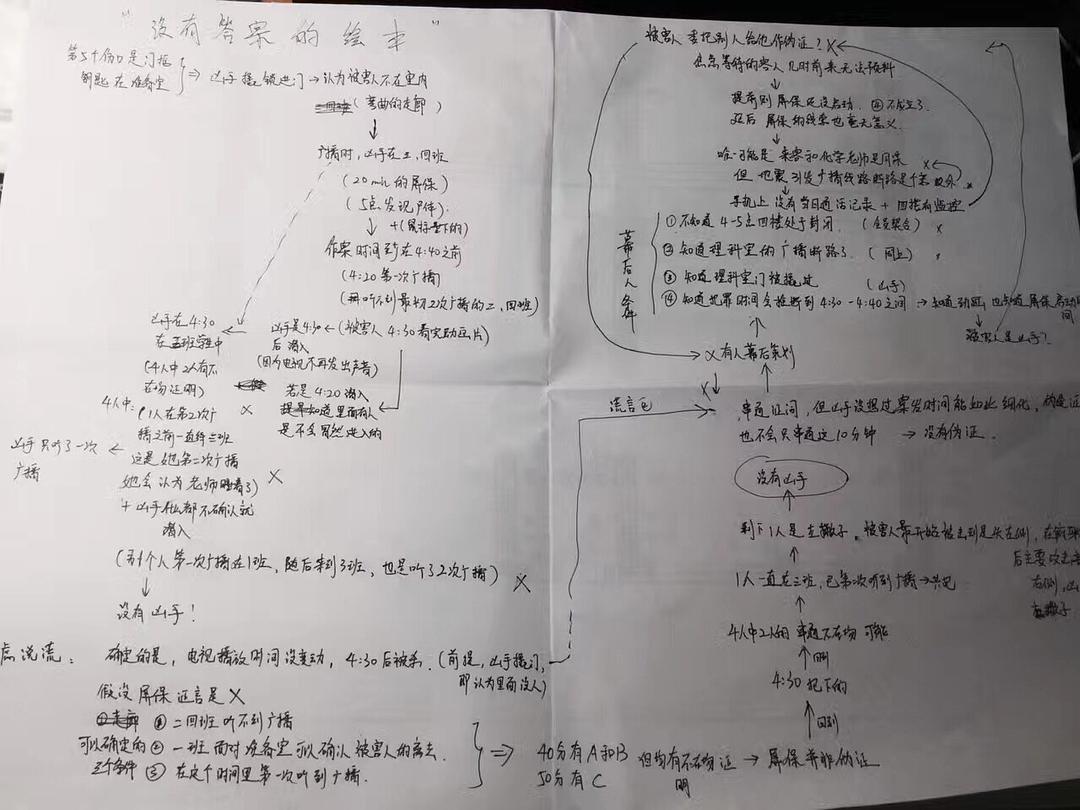 "没有答案的绘本"
第5个伤口是门框
钥匙在准备室
⇒ 凶手撬锁进门→认为被害人不在室内
(弯曲的走廊)
↓
广播时,凶手在二、四班
(20min的屏保)
(5点发现尸体)
作案时间多在4:40之前
(4:20第一次广播)
凶手在4:30
(4人中2人有不
在场证明)
凶手是4:30←(被害人4:30看完动画片)
后潜入
(因为电视不再发出声音)
若是4:20潜入
是不会冒然进入的
4人中:
1人在第2次广
播之前一直待三班
这是她第二次广播
她会认为老师睡着了)
×
凶手只听了一次
广播
+凶手什么都不确认就
潜入
(另1个人第一次广播在1班,随后来到3班,也是听了2次广播) ×
↓
没有凶手!
虑说流:
确定的是,电视播放时间没变动,4:30后被杀.(前提,凶手撬门,
即认为里面没人)
假设屏保证言是×
① 二四班听不到广播
可以确定的② 一班面对准备室可以确认被害人的离去
三个条件③ 在这个时间里第一次听到广播.
⇒ 40分有A和B
50分有C
但均有不在场证
明
→屏保并非伪证
被害人委托别人给他作伪证?×
但急等待的客人几时前来无法预料
↓
提前则屏保还没启动,④不成立了.
延后屏保的线索也毫无意义.
↓
唯一可能是 乘客和化学老师是同伙 ×
但 地震引发广播线路断路是个意外. ×
↓
手机上没有当日通话记录+四楼有监控
幕后人条件
① 不知道4-5点四楼处于封闭. ×
② 知道理科室的广播断路了.(同上)
③ 知道理科室门被撬过 (凶手)
④ 知道犯罪时间会推断到4:30-4:40之间→知道动画,也知道屏保启动时
间
被害人是凶手?
×有人幕后策划
谎言它
串通证词,但凶手没想过案发时间能如此细化,
也不会只串通这10分钟 → 没有伪证.
没有凶手
↑
剩下1人是左撇子.被害人最开始被击到是头左侧,
后主要攻击
右侧,
左撇子.
↑
1人一直在三班,已第2次听到广播→
↑
4人中2人的串通不在场可能
↑ 回到
4:30犯下的
↑ 回到